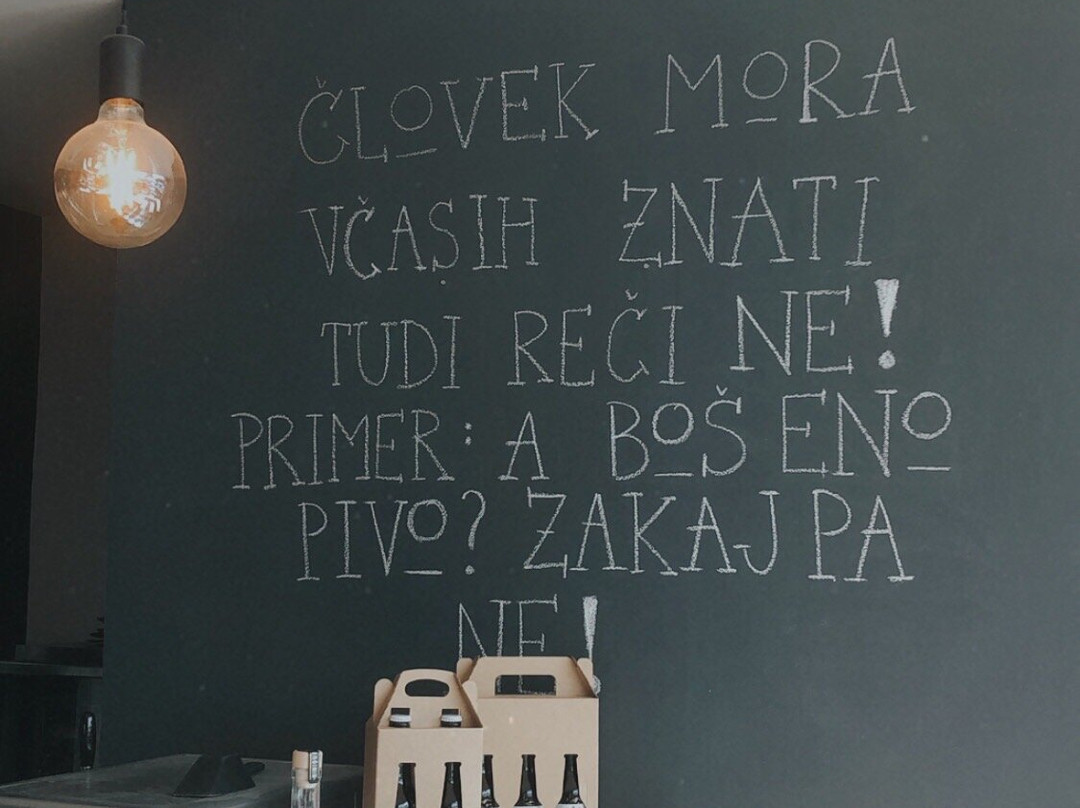 ČLOVEK MORA
VČASIH ZNATI
TUDI REČI NE!
PRIMER: A BOŠ ENO
PIVO? ZAKAJ PA
NE!